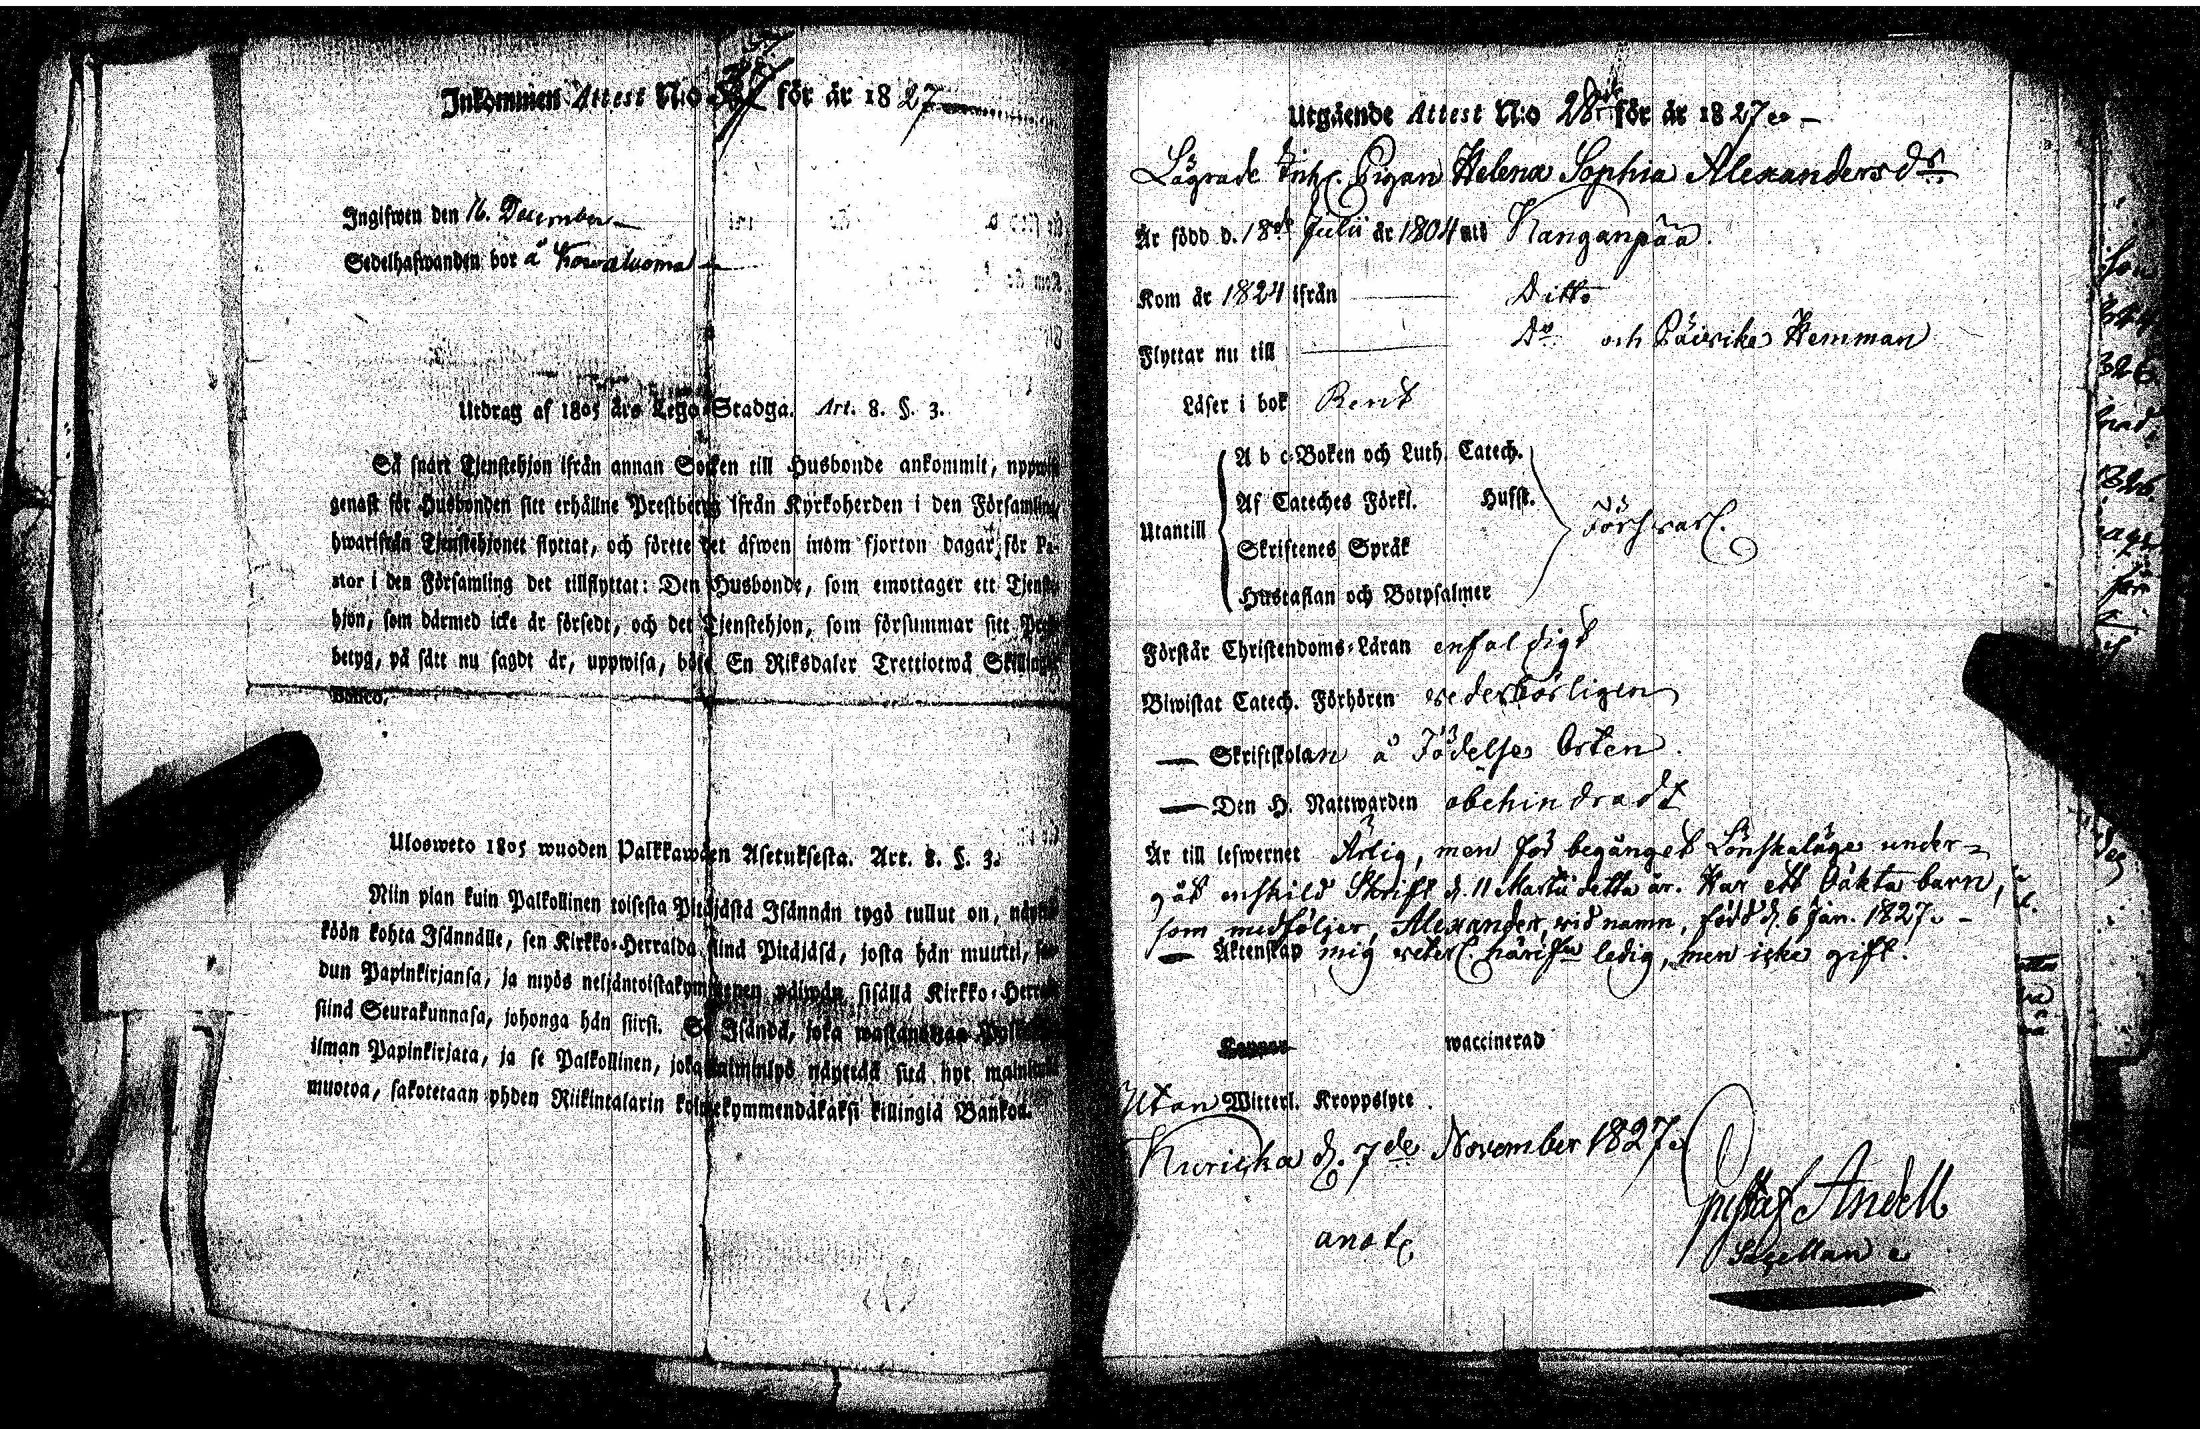 Inkommen Attest N:o för år 1827
Ingifwen den 16. December
Sedelhafwanden bor å Kowaluoma
Utdrag af 1805 års Lego-Stadga. Art. 8. §. 3.
Så snart Tjenstehjon ifrån annan Socken till Husbonde ankommit,
genast för Husbonden sitt erhållne Prestbetyg ifrån Kyrkoherden i den Församling
hwarifrån Tjenstehjonet flyttat, och förete det äfwen inom fjorton dagar för Pa-
stor i den Församling det tillflyttat: Den Husbonde, som emottager ett Tjenste-
hjon, som därmed icke är försedt, och det Tjenstehjon, som försummar sitt Prest-
betyg, på sätt nu sagdt är, uppwisa, böte En Riksdaler Trettiotwå Skillingar
Banco.
Ulosweto 1805 wuoden Palkkawäen Asetuksesta. Art. 8. §. 3.
Niin pian kuin Palkollinen toisesta Pitäjästä Isännän tygö tullut on,
köön kohta Isännälle, sen Kirkko-Herralda siinä Pitäjäsä, josta hän muutti,
dun Papinkirjansa, ja myös neljäntoistakymmenen päiwän sisällä Kirkko-Herralle
siinä Seurakunnasa, johonga hän siirsi. Se Isändä, joka wastanottaa Palkollisen
ilman Papinkirjata, ja se Palkollinen, joka laiminlyö näyttää sitä nyt mainitulla
muotoa, sakotetaan yhden Riikintalarin kolmekymmendäkaksi killingiä Bankoa.
Utgående Attest N:o 28de för år 1827 –
Lägrade Inh. Pigan Helena Sophia Alexandersdr
Är född d. 18de Julii år 1804 uti Kanganpää
Kom år 1824 ifrån Ditto
Flyttar nu till Do och Päiwike Hemman
Läser i bok Rent
A b c-Boken och Luth. Catech.
Af Cateches Förkl. Hufst.
Utantill Försvarl.
Skriftenes Språk
Hustaflan och Botpsalmer
Förstår Christendoms-Läran enfaldigt
Biwistat Catech. Förhören vederbörligen
— Skriftskolan å Födelse Orten.
— Den H. Nattwarden obehindradt
Är till lefwernet Ärlig, men för begånget Lönskaläge under-
gåt enskild Skrift d. 11 Martii detta år. Har ett oäkta barn,
som medföljer, Alexander, vid namn, född d. 6 Jan. 1827. –
— Äktenskap mig veterl. härifrn ledig, men icke gift.
Koppor waccinerad
Utan Witterl. Kroppslyte.
Kuricka d. 7de November 1827.
Gustaf Andell
Sacellan
anot.